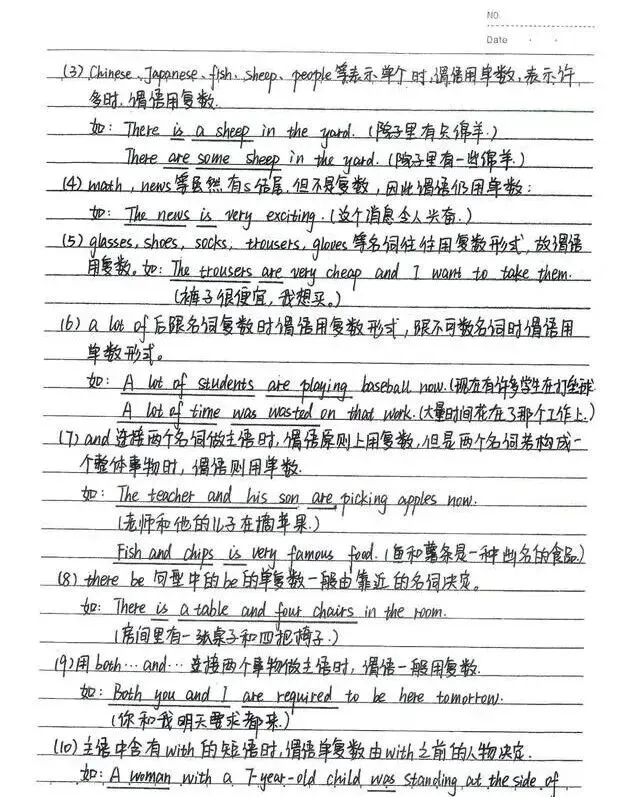 NO.
Date
(3) Chinese、Japanese、fish、sheep、people等表示单个时,谓语用单数,表示许
多时,谓语用复数.
如: There is a sheep in the yard. (院子里有只绵羊.)
There are some sheep in the yard. (院子里有一些绵羊.)
(4) math, news等虽然有s结尾,但不是复数,因此谓语仍用单数:
如: The news is very exciting. (这个消息令人兴奋.)
(5) glasses, shoes, socks, trousers, gloves等名词往往用复数形式,故谓语
用复数。如: The trousers are very cheap and I want to take them.
(裤子很便宜,我想买。)
(6) a lot of 后跟名词复数时谓语用复数形式,跟不可数名词时谓语用
单数形式。
如: A lot of students are playing baseball now. (现在有许多学生在打垒球
A lot of time was wasted on that work. (大量时间花在了那个工作上.)
(7) and 连接两个名词做主语时,谓语原则上用复数,但是两个名词若构成一
个整体事物时,谓语则用单数.
如: The teacher and his son are picking apples now.
(老师和他的儿子在摘苹果.)
Fish and chips is very famous food. (鱼和薯条是一种出名的食品.)
(8) there be 句型中的be的单复数一般由靠近的名词决定。
如: There is a table and four chairs in the room.
(房间里有一张桌子和四把椅子.)
(9)用both…and…连接两个事物做主语时,谓语一般用复数.
如: Both you and I are required to be here tomorrow.
(你和我明天要求都来.)
(10) 主语中含有with的短语时,谓语单复数由with之前的人物决定.
如: A woman with a 7-year-old child was standing at the side of